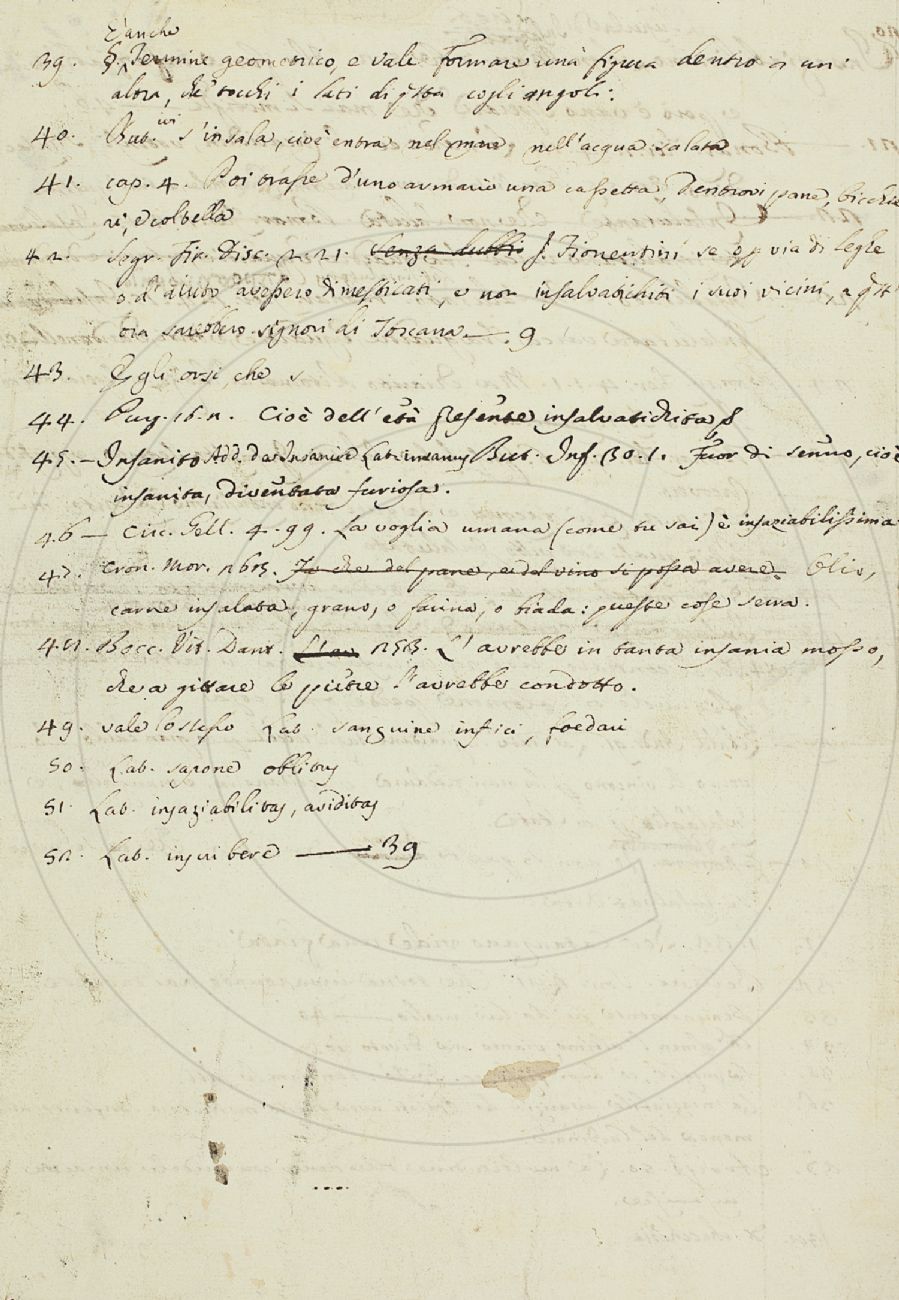 È anche
39. §. Termine geometrico, e vale Formare una figura dentro a un'
altra, che tocchi i lati di qsta cogli angoli:
40. But. ivi s'insala, cioè entra nel mare nell'acqua salata
41. cap. 4. Poi trasse d'uno armario una cassetta, dentrovi pane, bicchie
ri, e coltella
42. Segr. Fir. Disc. 2. 21. Senza dubbi. J. Fiorentini se p via di leghe
o d'aiuto avessero dimesticati, e non insalvatichiti i suoi vicini, a qst'
ora sarebbero signori di Toscana — . 9
43. Egli orsi che s
44. Purg. 16. n. Cioè dell'età presente insalvatichita, §
45. – Insanito Add. da Insanire Lat. insanus But. Inf. 30. 1. Fuor di senno, cioè
insanita, diventata furiosa.
46 — Circ. Gell. 4. 99. La voglia umana (come tu sai) è insaziabilissima
47. Cron. Mor. 265. Io che del pane, e del vino si possa avere. Olio,
carne insalata, grano, o farina, o biada: queste cose serra.
48. Bocc. Vit. Dant. L'av 253. L'avrebbe in tanta insania mosso,
che a gittare le pietre l'avrebbe condotto.
49. vale lo stesso Lat. sanguine infici, foedari
50. Lat. sapone oblitus
51. Lat. insaziabilitas, aviditas
52. Lat. inscribere —— 39